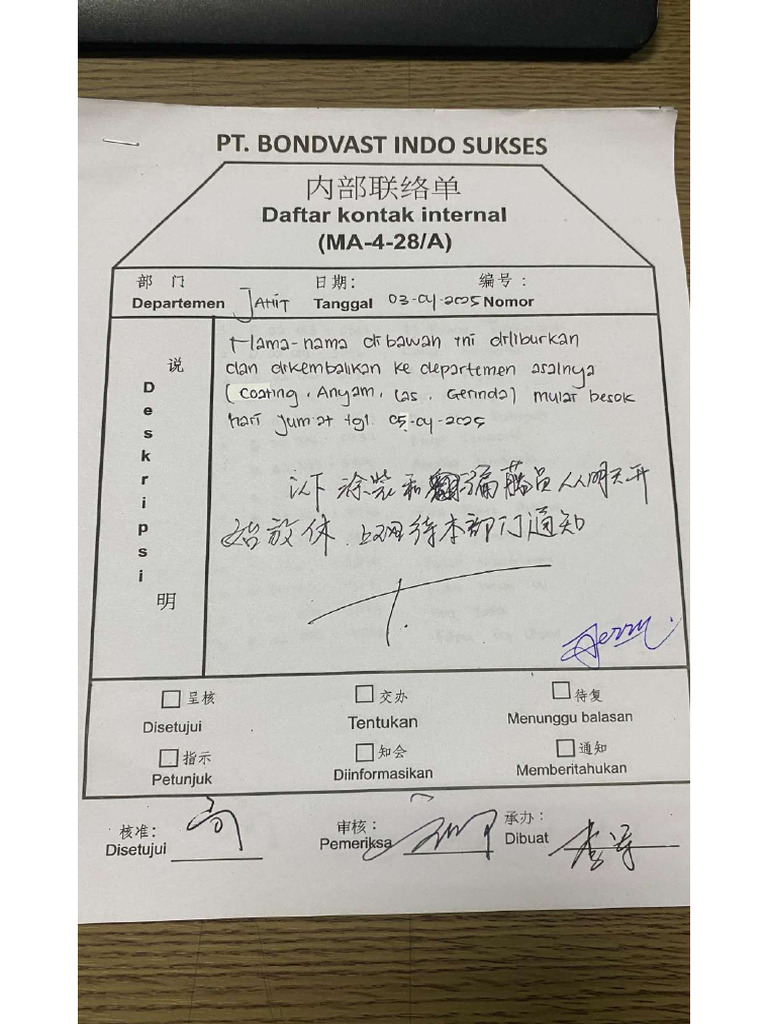 PT. BONDVAST INDO SUKSES
内部联络单
Daftar kontak internal
(MA-4-28/A)
部 门 日期： 编号：
Departemen JAHIT Tanggal 03-04-2025 Nomor
说 Deskripsi 明
Nama-nama di bawah ini diliburkan
dan dikembalikan ke departemen asalnya
(Coating, Anyam, Las, Gerinda) mulai besok
hari jum'at tgl 05-04-2025
以下涂装和编藤员从明天开
始放休，上班待本部门通知
Jerry
呈核 交办 待复
Disetujui Tentukan Menunggu balasan
指示 知会 通知
Petunjuk Diinformasikan Memberitahukan
核准： 审核： 承办：
Disetujui Pemeriksa Dibuat